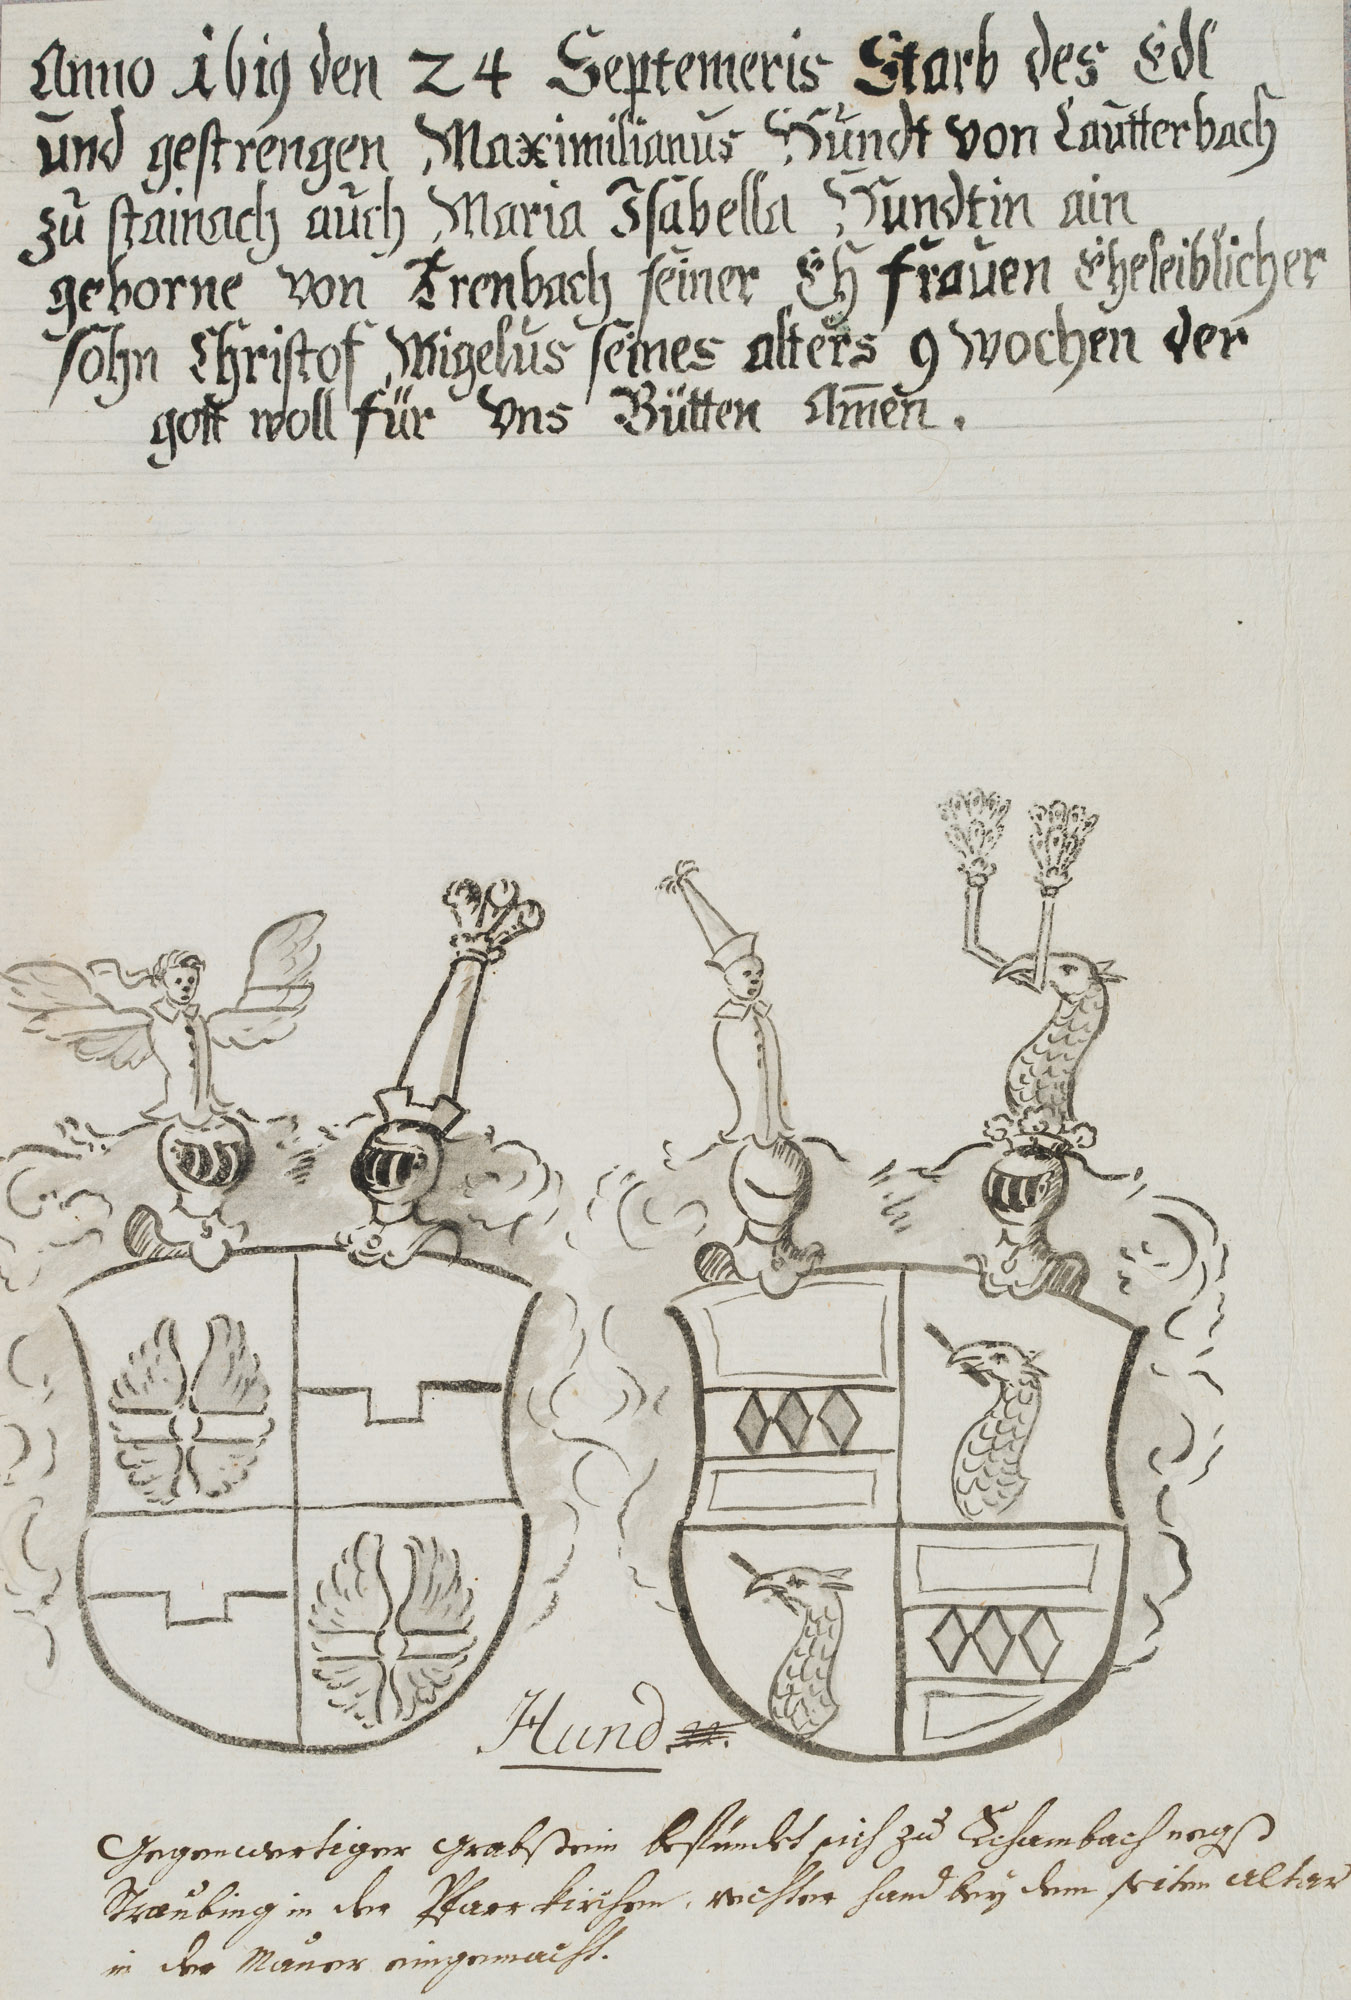 Anno 1619 den 24 Septemeris Starb des Edl
und gestrengen Maximilianus Hundt von Lautterbach
zu stainach auch Maria Isabella Hundtin ain
geborne von Trenbach seiner Eh frauen Eheleiblicher
sohn Christof Wigelus seines alters 9 wochen der
gott woll für vns Bütten Am̅en.
Hund
Gegenwertiger Grabstein befündet sich zu Schambach negst
Straubing in der Pfarr kirchen, rechter hand bey dem seiten altar
in der Mauer eingemacht.